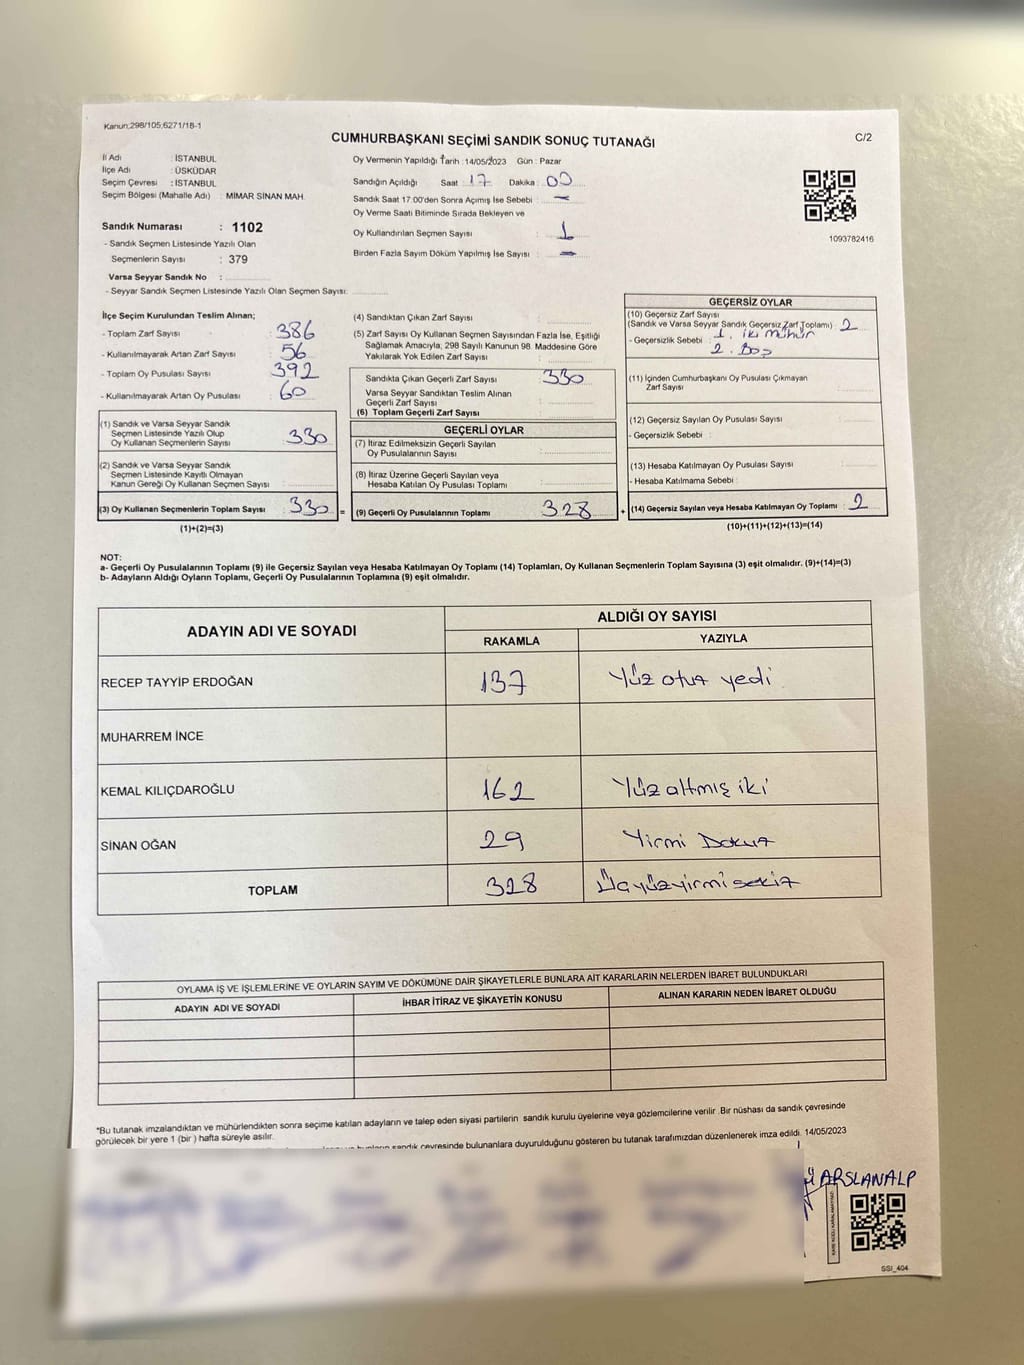 Kanun;298/105,6271/18-1
CUMHURBAŞKANI SEÇİMİ SANDIK SONUÇ TUTANAĞI
C/2
İl Adı : İSTANBUL
İlçe Adı : ÜSKÜDAR
Seçim Çevresi : İSTANBUL
Seçim Bölgesi (Mahalle Adı) : MİMAR SİNAN MAH.
Sandık Numarası : 1102
- Sandık Seçmen Listesinde Yazılı Olan
Seçmenlerin Sayısı : 379
Varsa Seyyar Sandık No :
- Seyyar Sandık Seçmen Listesinde Yazılı Olan Seçmen Sayısı:
Oy Vermenin Yapıldığı Tarih :14/05/2023 Gün : Pazar
Sandığın Açıldığı Saat : 17 Dakika : 00
Sandık Saat 17:00'den Sonra Açımış İse Sebebi : —
Oy Verme Saati Bitiminde Sırada Bekleyen ve
Oy Kullandırılan Seçmen Sayısı : 1
Birden Fazla Sayım Döküm Yapılmış İse Sayısı : —
1093782416
İlçe Seçim Kurulundan Teslim Alınan;
- Toplam Zarf Sayısı : 386
- Kullanılmayarak Artan Zarf Sayısı : 56
- Toplam Oy Pusulası Sayısı : 392
- Kullanılmayarak Artan Oy Pusulası : 60
(1) Sandık ve Varsa Seyyar Sandık
Seçmen Listesinde Yazılı Olup
Oy Kullanan Seçmenlerin Sayısı : 330
(2) Sandık ve Varsa Seyyar Sandık
Seçmen Listesinde Kayıtlı Olmayan
Kanun Gereği Oy Kullanan Seçmen Sayısı :
(3) Oy Kullanan Seçmenlerin Toplam Sayısı : 330 =
(1)+(2)=(3)
(4) Sandıktan Çıkan Zarf Sayısı :
(5) Zarf Sayısı Oy Kullanan Seçmen Sayısından Fazla İse, Eşitliği
Sağlamak Amacıyla; 298 Sayılı Kanunun 98. Maddesine Göre
Yakılarak Yok Edilen Zarf Sayısı :
Sandıkta Çıkan Geçerli Zarf Sayısı : 330
Varsa Seyyar Sandıktan Teslim Alınan
Geçerli Zarf Sayısı :
(6) Toplam Geçerli Zarf Sayısı :
GEÇERLİ OYLAR
(7) İtiraz Edilmeksizin Geçerli Sayılan
Oy Pusulalarının Sayısı :
(8) İtiraz Üzerine Geçerli Sayılan veya
Hesaba Katılan Oy Pusulası Toplamı :
(9) Geçerli Oy Pusulalarının Toplamı : 328 +
GEÇERSİZ OYLAR
(10) Geçersiz Zarf Sayısı
(Sandık ve Varsa Seyyar Sandık Geçersiz Zarf Toplamı) : 2
- Geçersizlik Sebebi : 1. iki mühür
2. Boş
(11) İçinden Cumhurbaşkanı Oy Pusulası Çıkmayan
Zarf Sayısı :
(12) Geçersiz Sayılan Oy Pusulası Sayısı :
- Geçersizlik Sebebi :
(13) Hesaba Katılmayan Oy Pusulası Sayısı :
- Hesaba Katılmama Sebebi :
(14) Geçersiz Sayılan veya Hesaba Katılmayan Oy Toplamı : 2
(10)+(11)+(12)+(13)=(14)
NOT:
a- Geçerli Oy Pusulalarının Toplamı (9) ile Geçersiz Sayılan veya Hesaba Katılmayan Oy Toplamı (14) Toplamları, Oy Kullanan Seçmenlerin Toplam Sayısına (3) eşit olmalıdır. (9)+(14)=(3)
b- Adayların Aldığı Oyların Toplamı, Geçerli Oy Pusulalarının Toplamına (9) eşit olmalıdır.
ADAYIN ADI VE SOYADI
ALDIĞI OY SAYISI
RAKAMLA YAZIYLA
RECEP TAYYİP ERDOĞAN 137 Yüz otuz yedi
MUHARREM İNCE
KEMAL KILIÇDAROĞLU 162 Yüz altmış iki
SİNAN OĞAN 29 Yirmi Dokuz
TOPLAM 328 Üçyüzyirmisekiz
OYLAMA İŞ VE İŞLEMLERİNE VE OYLARIN SAYIM VE DÖKÜMÜNE DAİR ŞİKAYETLERLE BUNLARA AİT KARARLARIN NELERDEN İBARET BULUNDUKLARI
ADAYIN ADI VE SOYADI İHBAR İTİRAZ VE ŞİKAYETİN KONUSU ALINAN KARARIN NEDEN İBARET OLDUĞU
*Bu tutanak imzalandıktan ve mühürlendikten sonra seçime katılan adayların ve talep eden siyasi partilerin sandık kurulu üyelerine veya gözlemcilerine verilir .Bir nüshası da sandık çevresinde
görülecek bir yere 1 (bir ) hafta süreyle asılır.
sandık çevresinde bulunanlara duyurulduğunu gösteren bu tutanak tarafımızdan düzenlenerek imza edildi. 14/05/2023
ARSLANALP
KARE KODU KARALAMAYINIZ!
SSI_404